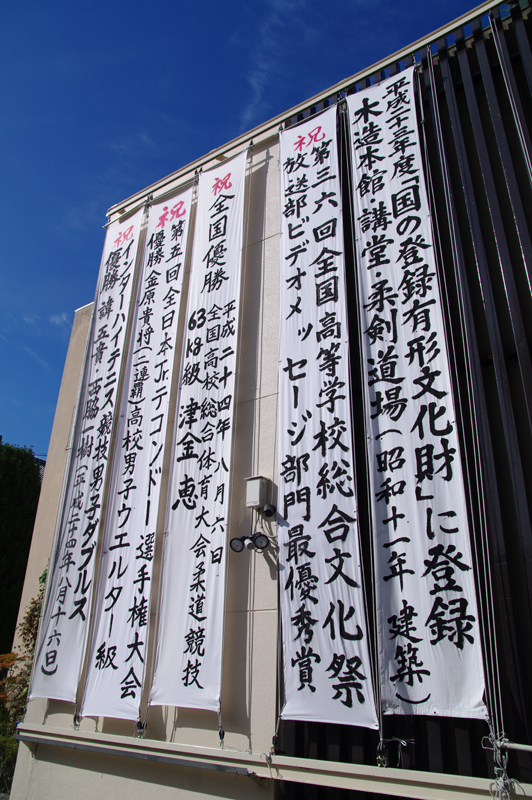 平成二十三年度「国の登録有形文化財」に登録
木造本館・講堂・柔剣道場(昭和十一年 建築)
祝
第三六回全国高等学校総合文化祭
放送部ビデオメッセージ部門最優秀賞
祝
全国優勝
平成二十四年八月六日
全国高校総合体育大会柔道競技
63kg級 津金恵
祝
第五回全日本Jr.テコンドー選手権大会
優勝 金原貴将(二連覇)高校男子ウエルター級
祝
インターハイテニス競技男子ダブルス
優勝 諱五貴・西脇一樹(平成二十四年八月十六日)